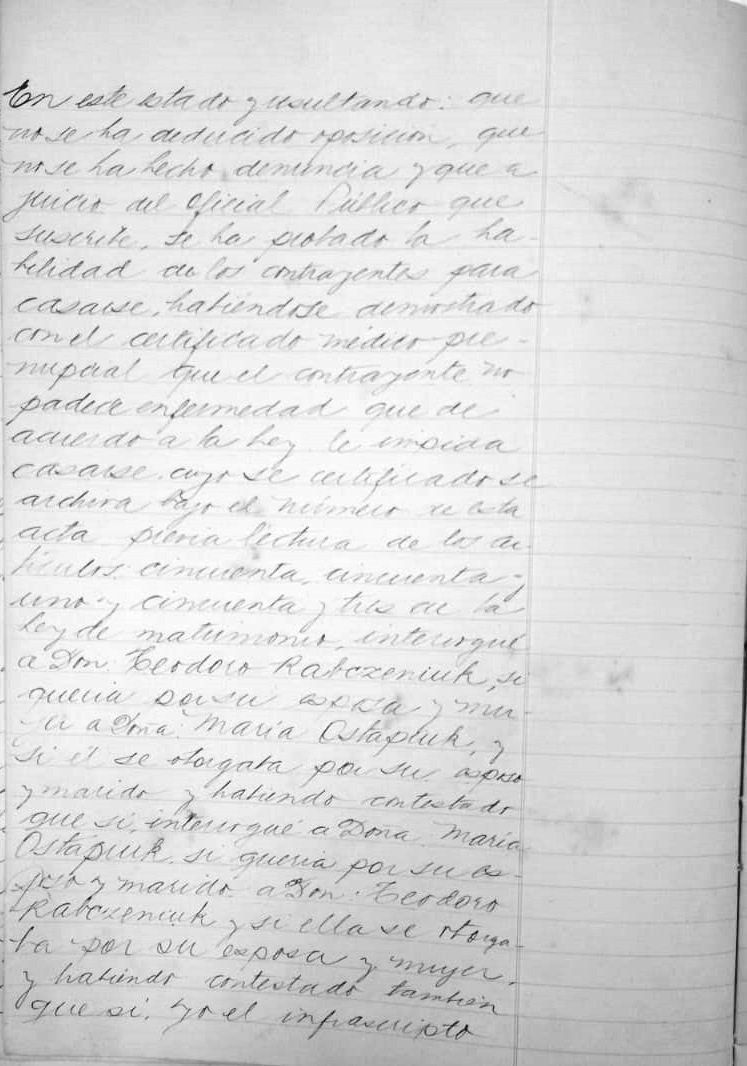 En este estado y resultando: que
no se ha deducido oposición, que
no se ha hecho denuncia y que a
juicio del Oficial Público que
suscribe, se ha probado la ha-
bilidad de los contrayentes para
casarse, habiéndose demostrado
con el certificado médico pre-
nupcial que el contrayente no
padece enfermedad que de
acuerdo a la Ley le impida
casarse, cuyo se certificado se
archiva bajo el número de esta
acta previa lectura de los ar-
tículos cincuenta, cincuenta y
uno y cincuenta y tres de la
Ley de matrimonio, interrogué
a Don: Teodoro Rabczeniuk, si
quería por su esposa y mu-
jer a Doña: María Ostapiuk, y
si él se otorgaba por su esposo
y marido y habiendo contestado
que sí, interrogué a Doña María
Ostapiuk, si quería por su es-
poso y marido a Don: Teodoro
Rabczeniuk y si ella se otorga-
ba por su esposa y mujer,
y habiendo contestado también
que sí, yo el infrascripto